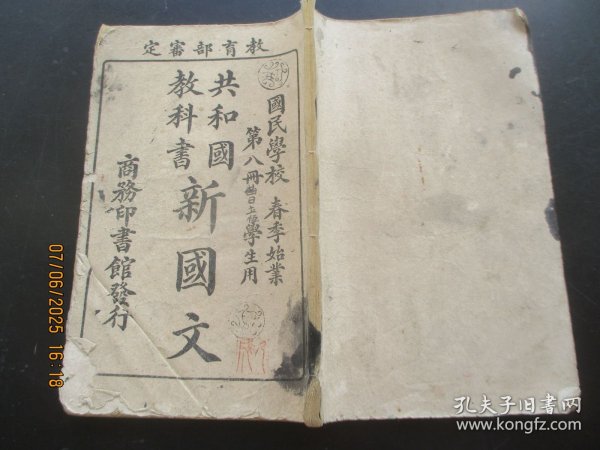 教育部審定
國民學校 春季始業
第八冊 學生用
共和國
教科書
新國文
商務印書館發行
07/06/2025 16:18
孔夫子旧书网
www.kongfz.com